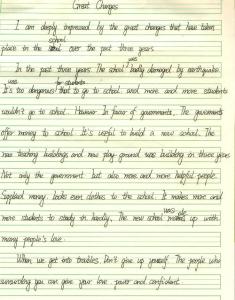 Great Changes
I am deeply impressed by the great changes that have taken
school
place in the over the past three years.
was
In the past three years. The school badly damaged by earthquake.
was for students
It's too dangerous that to go to school and more and more students
wouldn't go to school. However In favor of governments. The governments
offer money to school. It's useful to build a new school. The
new teaching buildings and new play ground was building in three years
Not only the government but also more and more helpful people.
Supplied money, books even clothes to the school. It makes more and
more students to study in hardly. The new school up with
many people's love.
When we get into troubles. Don't give up yourself. The people who
surrounding you can give your love power and confident.